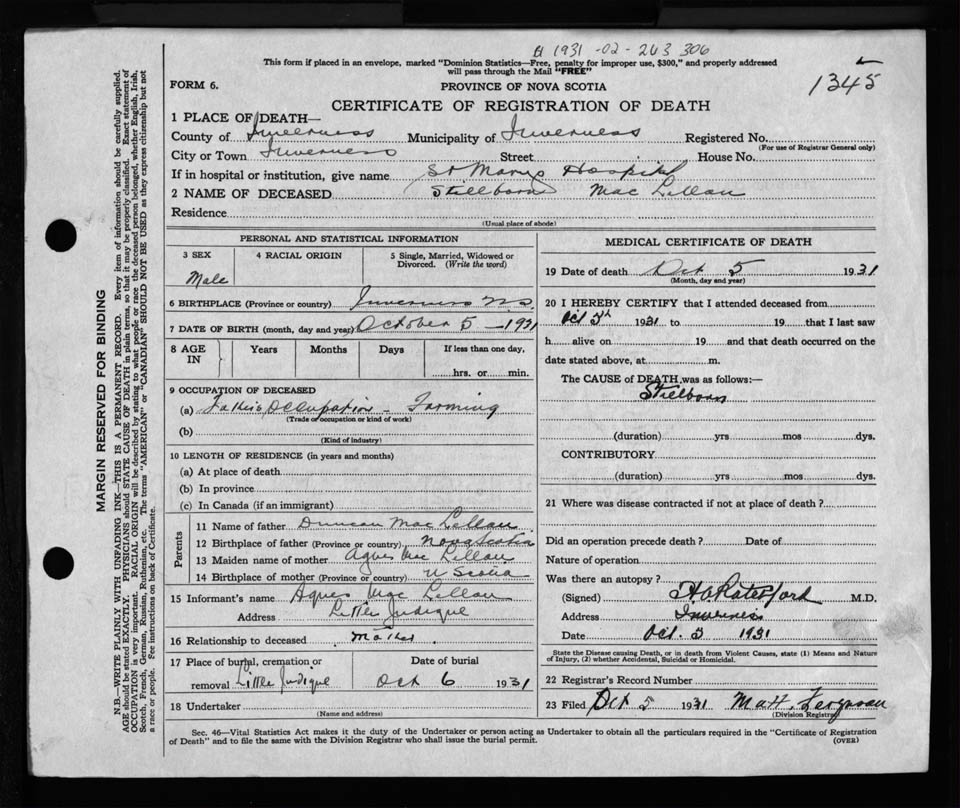 1931 -02- 263 306
This form if placed in an envelope, marked "Dominion Statistics—Free, penalty for improper use, $300," and properly addressed
will pass through the Mail "FREE"
1345
FORM 6.
PROVINCE OF NOVA SCOTIA
CERTIFICATE OF REGISTRATION OF DEATH
1 PLACE OF DEATH—
County of Inverness Municipality of Inverness Registered No.
(For use of Registrar General only)
City or Town Inverness Street House No.
If in hospital or institution, give name St Marys Hospital
2 NAME OF DECEASED Stillborn Mac Lellan
Residence
(Usual place of abode)
PERSONAL AND STATISTICAL INFORMATION
3 SEX 4 RACIAL ORIGIN 5 Single, Married, Widowed or
Divorced. (Write the word)
Male
6 BIRTHPLACE (Province or country) Inverness NS
7 DATE OF BIRTH (month, day and year) October 5 - 1931
8 AGE IN Years Months Days If less than one day,
hrs. or min.
9 OCCUPATION OF DECEASED
(a) Father's Occupation - Farming
(Trade or occupation or kind of work)
(b)
(Kind of industry)
10 LENGTH OF RESIDENCE (in years and months)
(a) At place of death
(b) In province
(c) In Canada (if an immigrant)
Parents
11 Name of father Duncan Mac Lellan
12 Birthplace of father (Province or country) Nova Scotia
13 Maiden name of mother Agnes Mac Lellan
14 Birthplace of mother (Province or country) N Scotia
15 Informant's name Agnes Mac Lellan
Address Little Judique
16 Relationship to deceased Mother
17 Place of burial, cremation or Date of burial
removal Little Judique Oct 6 1931
18 Undertaker
(Name and address)
MEDICAL CERTIFICATE OF DEATH
19 Date of death Oct 5 1931
(Month, day and year)
20 I HEREBY CERTIFY that I attended deceased from
Oct 5th 1931 to 19 that I last saw
h alive on 19 and that death occurred on the
date stated above, at m.
The CAUSE of DEATH was as follows:—
Stillborn
(duration) yrs mos dys.
CONTRIBUTORY
(duration) yrs mos dys.
21 Where was disease contracted if not at place of death?
Did an operation precede death? Date of
Nature of operation
Was there an autopsy?
(Signed) M.D.
Address Inverness
Date Oct. 5 1931
State the Disease causing Death, or in death from Violent Causes, state (1) Means and Nature
of Injury, (2) whether Accidental, Suicidal or Homicidal.
22 Registrar's Record Number
23 Filed Oct 5 1931 Matt. Ferguson
(Division Registrar)
Sec. 46—Vital Statistics Act makes it the duty of the Undertaker or person acting as Undertaker to obtain all the particulars required in the "Certificate of Registration
of Death" and to file the same with the Division Registrar who shall issue the burial permit.
(OVER)
MARGIN RESERVED FOR BINDING
N.B.—WRITE PLAINLY WITH UNFADING INK—THIS IS A PERMANENT RECORD. Every item of information should be carefully supplied.
AGE should be stated EXACTLY. PHYSICIANS should STATE CAUSE OF DEATH in plain terms, so that it may be properly classified. Exact statement of
OCCUPATION is very important. RACIAL ORIGIN will be described by stating to what people or race the deceased person belonged, whether English, Irish,
Scotch, French, German, Russian, Ruthenian, etc. The terms "AMERICAN" or "CANADIAN" SHOULD NOT BE USED as they express citizenship but not
a race or people. See instructions on back of Certificate.